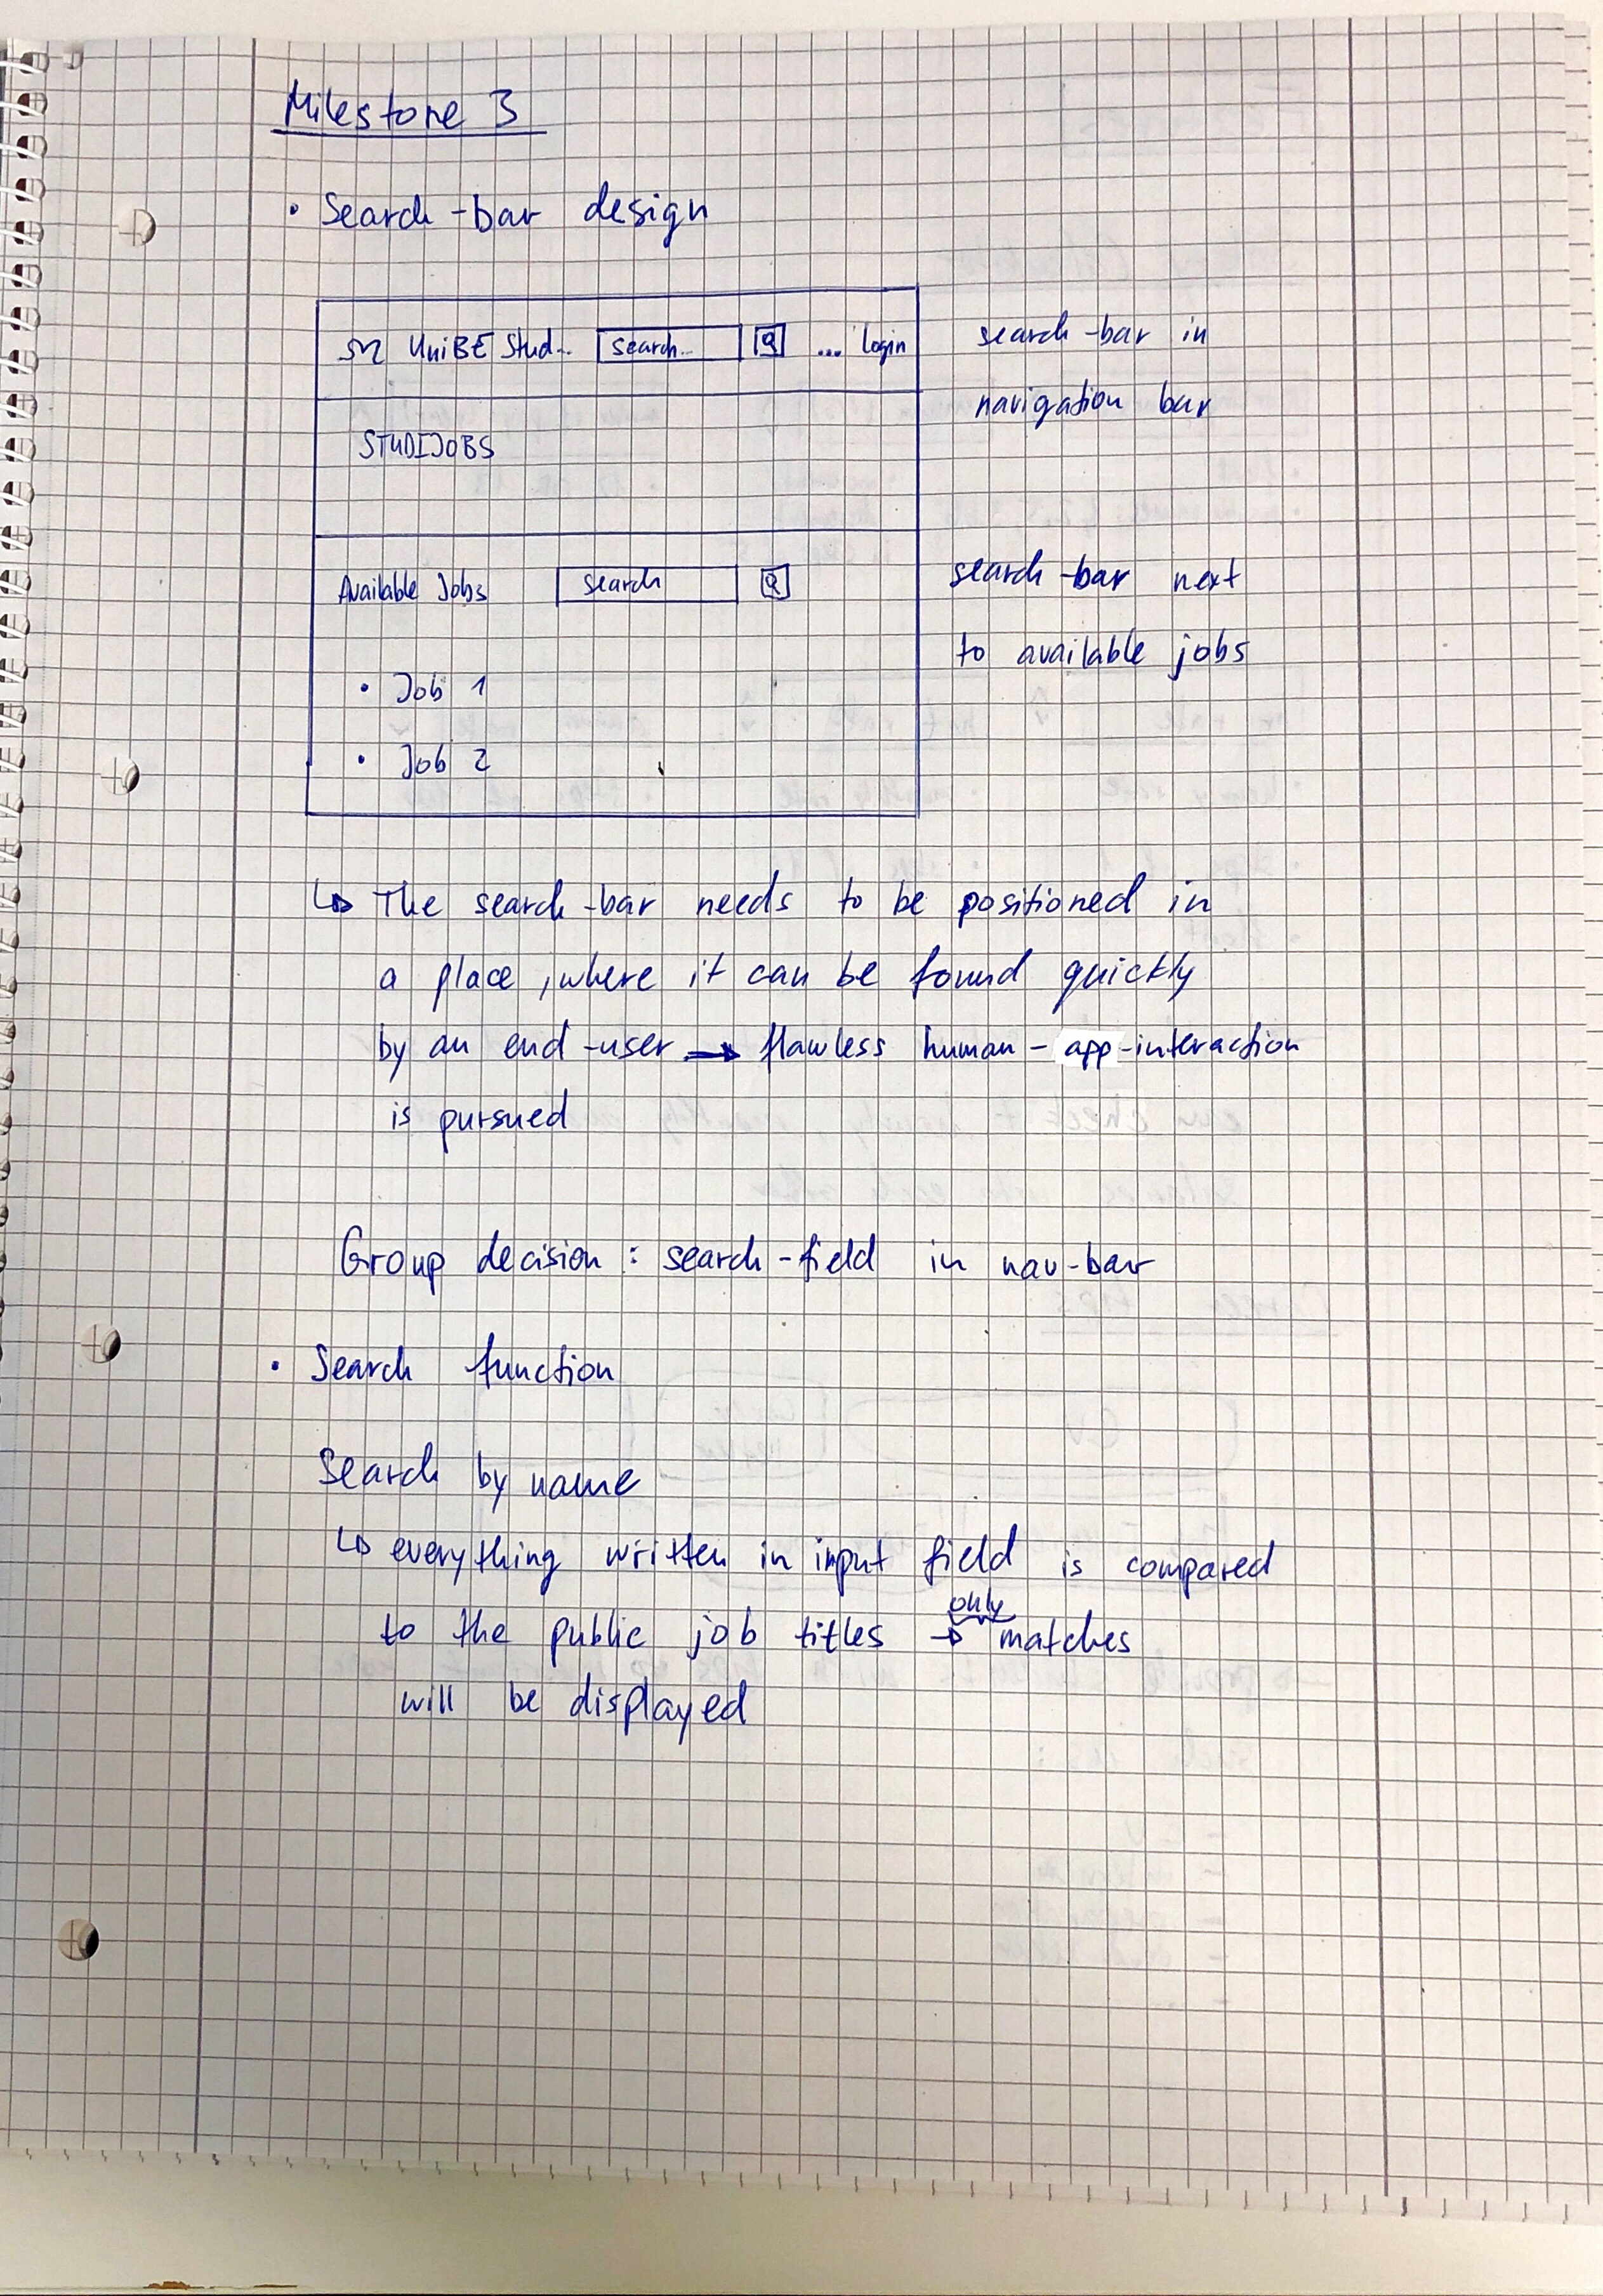 Milestone 3
• Search-bar design
UniBE Stud... search... Q ... login
search-bar in
navigation bar
STUDIJOBS
Available Jobs search Q
search-bar next
to available jobs
• Job 1
• Job 2
↳ The search-bar needs to be positioned in
a place, where it can be found quickly
by an end-user → flawless human-app-interaction
is pursued
Group decision : search-field in nav-bar
• Search function
Search by name
↳ everything written in input field is compared
only
to the public job titles → matches
will be displayed